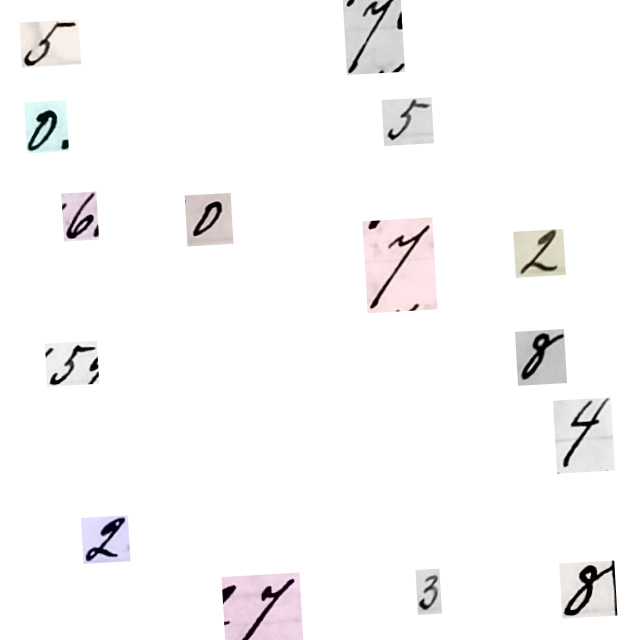 5 7
0. 5
6 0 7 2
5 8
4
2 7 3 8